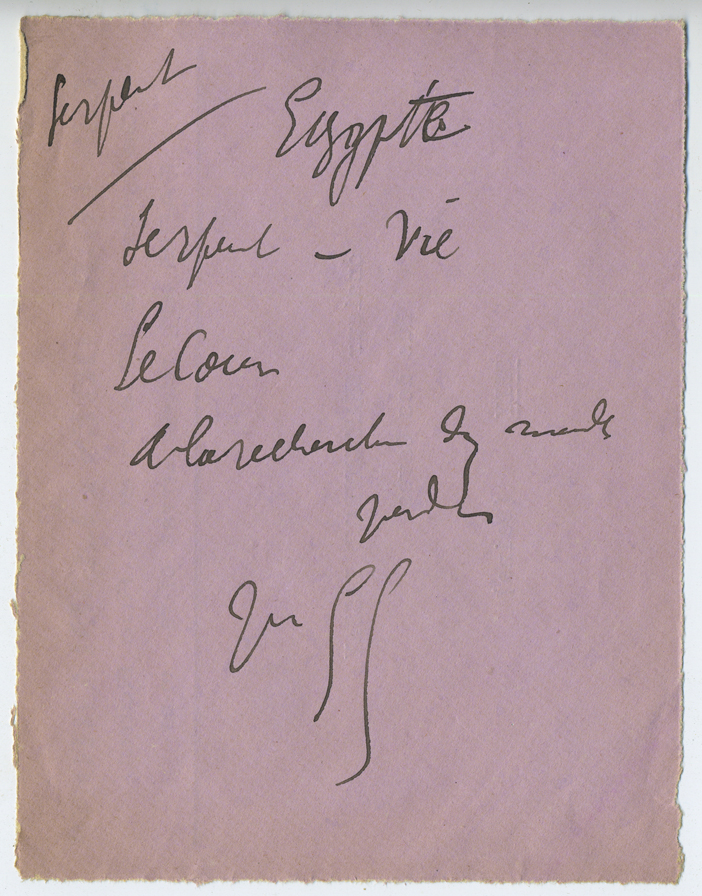 Serpent
Egypte
Serpent - Vie
Le Cour
A la recherche des mondes
perdus